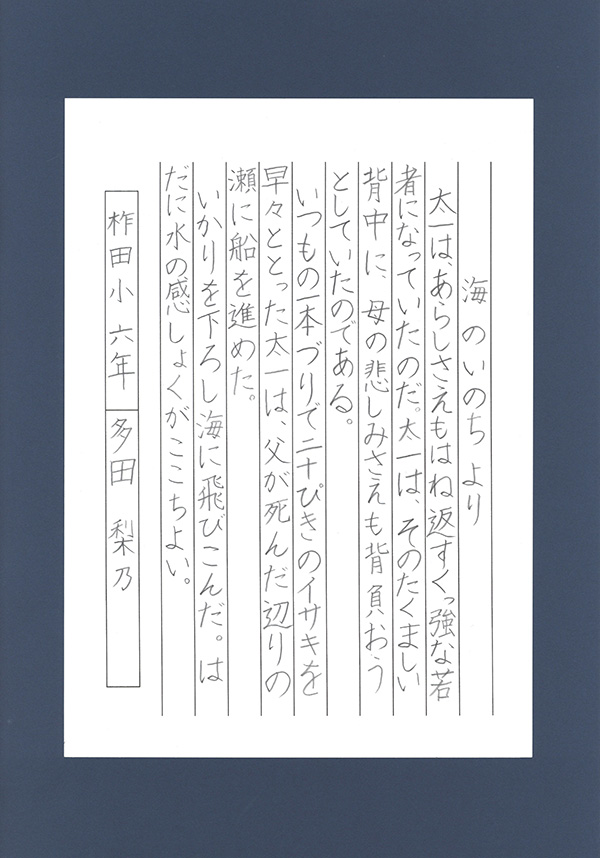 海のいのち より
太一は、あらしさえもはね返すくっ強な若
者になっていたのだ。太一は、そのたくましい
背中に、母の悲しみさえも背負おう
としていたのである。
いつもの一本づりで二十ぴきのイサキを
早々ととった太一は、父が死んだ辺りの
瀬に船を進めた。
いかりを下ろし海に飛びこんだ。は
だに水の感しょくがここちよい。
柞田小 六年 多田 梨乃